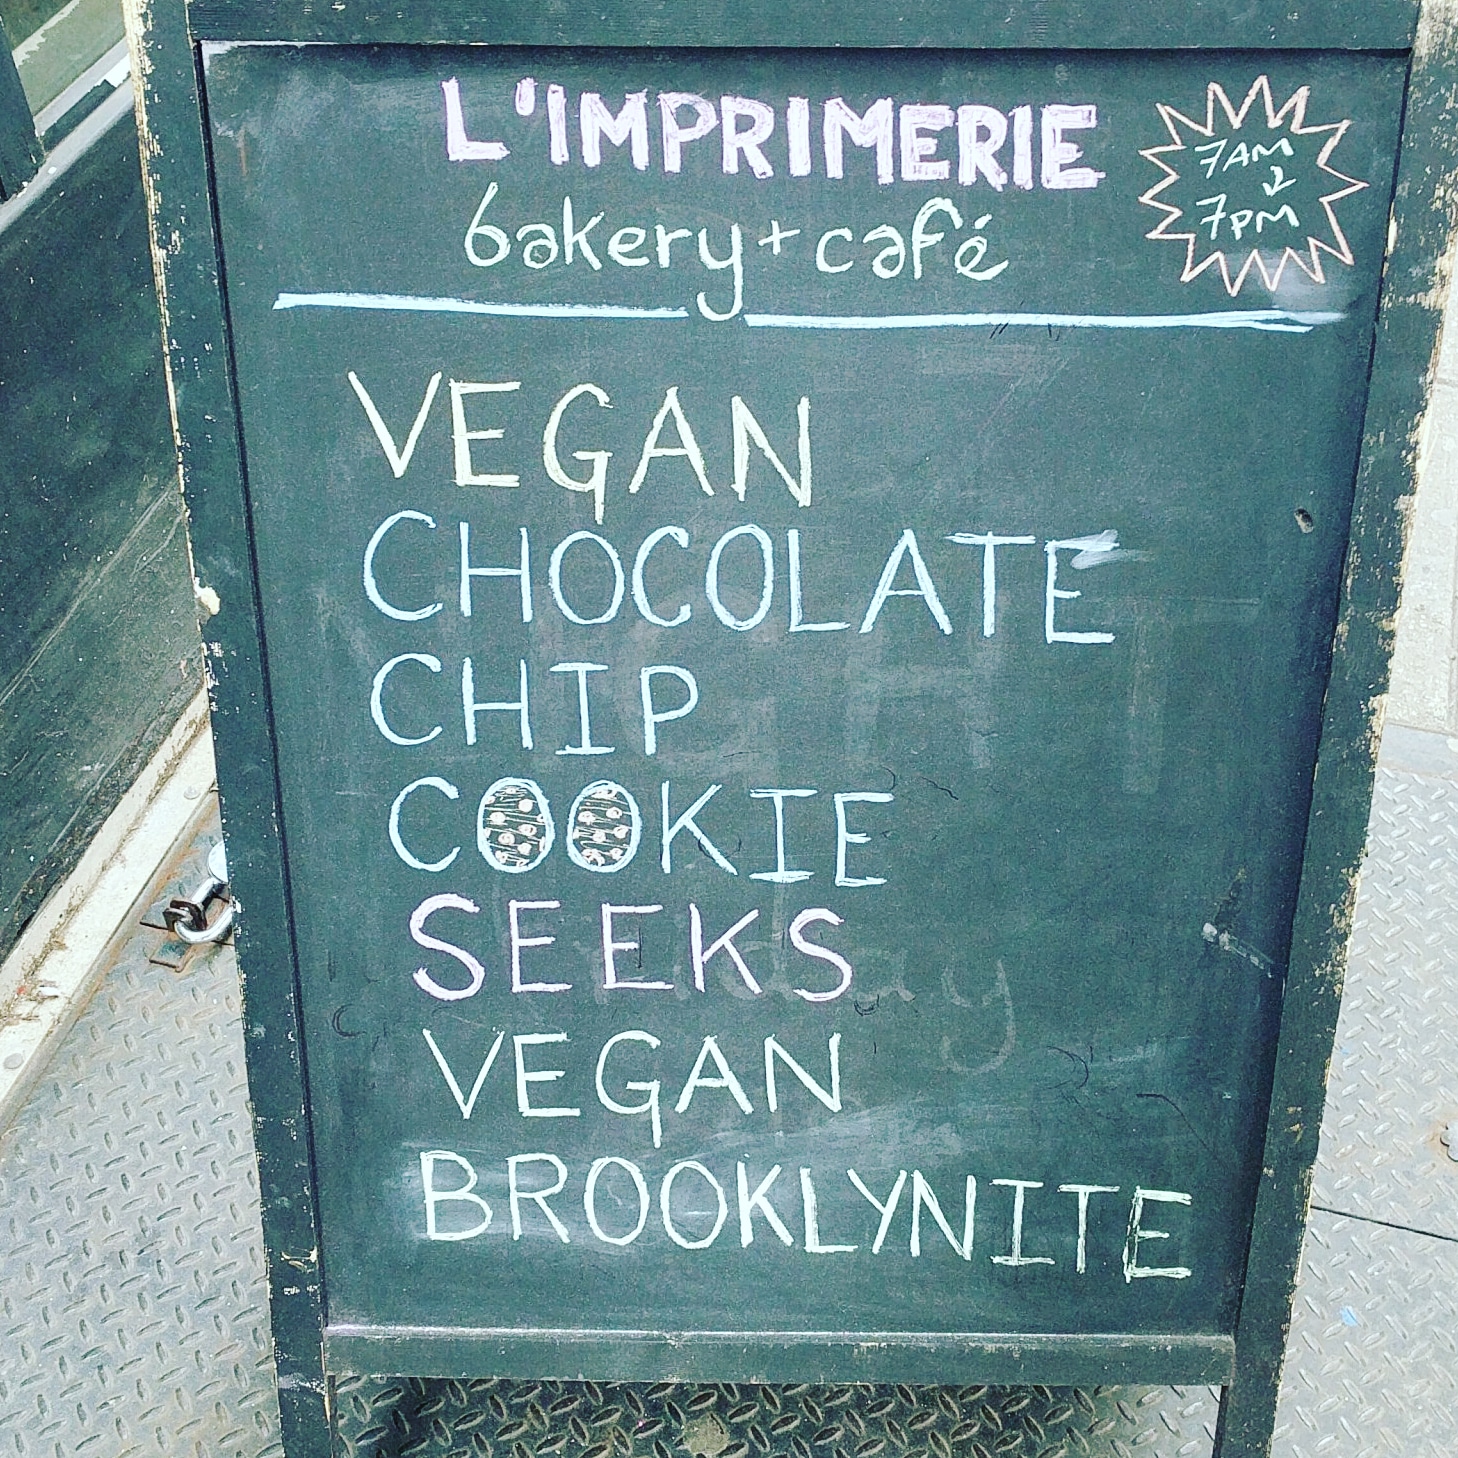 L'IMPRIMERIE
bakery + café
7AM
7PM
VEGAN
CHOCOLATE
CHIP
COOKIE
SEEKS
VEGAN
BROOKLYNITE